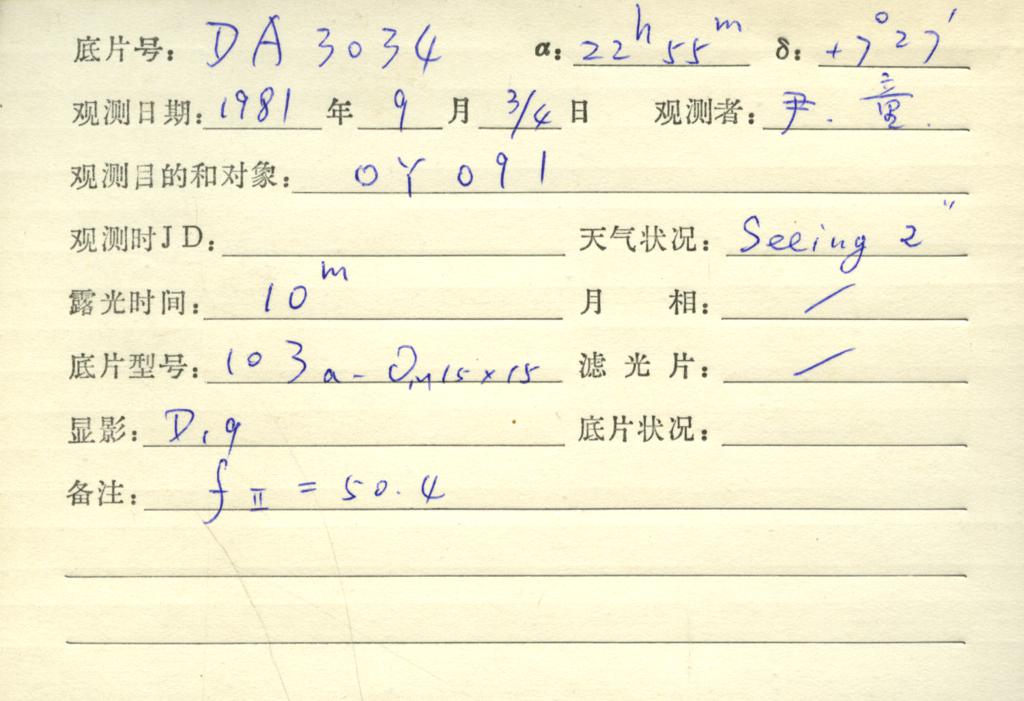 底片号: DA 3034 α: 22h 55m δ: +7°27′
观测日期: 1981 年 9 月 3/4 日 观测者: 尹. 童.
观测目的和对象: OY 091
观测时JD: 天气状况: Seeing 2″
露光时间: 10m 月 相: /
底片型号: 103a-O, 15×15 滤 光 片: /
显影: D19 底片状况:
备注: fII = 50.4